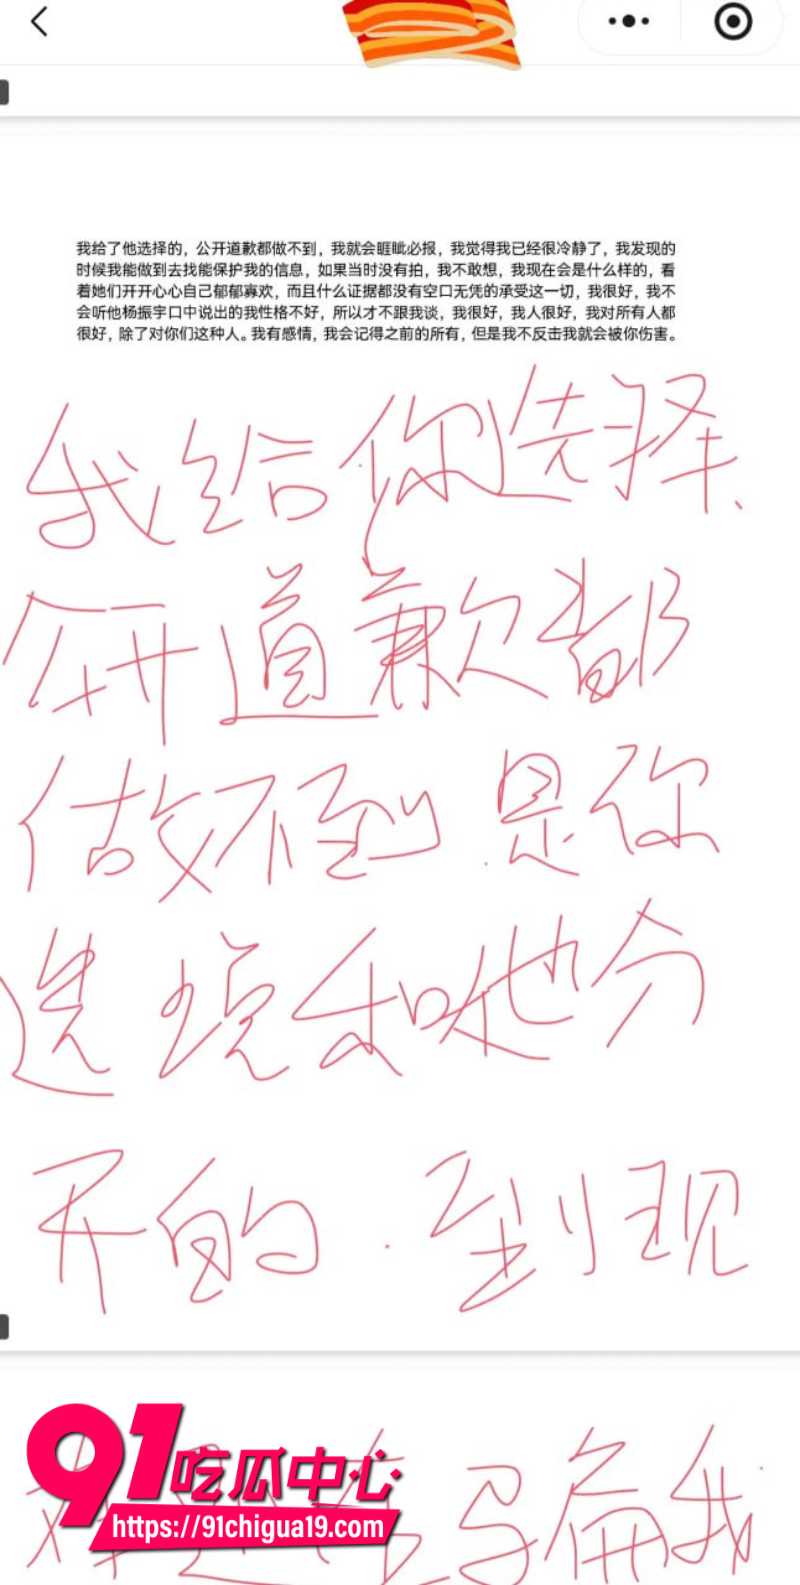 我给了他选择的，公开道歉都做不到，我就会睚眦必报，我觉得我已经很冷静了，我发现的
时候我能做到去找能保护我的信息，如果当时没有拍，我不敢想，我现在会是什么样的，看
着她们开开心心自己郁郁寡欢，而且什么证据都没有空口无凭的承受这一切，我很好，我不
会听他杨振宇口中说出的我性格不好，所以才不跟我谈，我很好，我人很好，我对所有人都
很好，除了对你们这种人。我有感情，我会记得之前的所有，但是我不反击我就会被你伤害。
我给你选择、
公开道歉都
做不到.是你
选 说和他分
开的.到现
骗我
91吃瓜中心
https://91chigua19.com